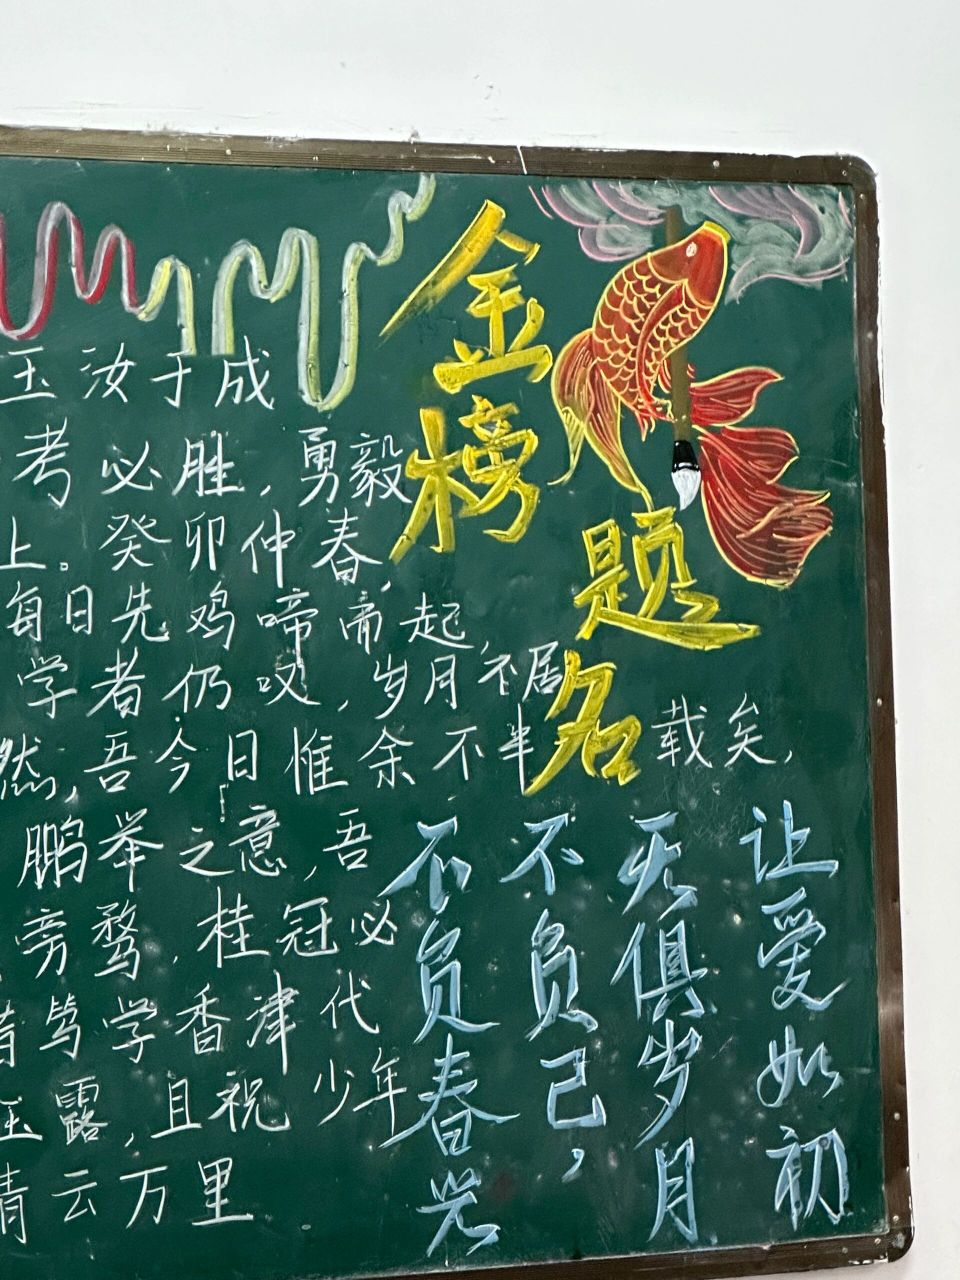 金榜题名
玉汝于成
考必胜，勇毅
上。癸卯仲春，
每日先鸡啼而起，
学者仍叹，岁月不居
然，吾今日惟余不半载矣，
鹏举之意，吾
旁骛，桂冠必
笃学香津代
露，且祝少年
青云万里
不负春光
不负己，
无惧岁月
让爱如初